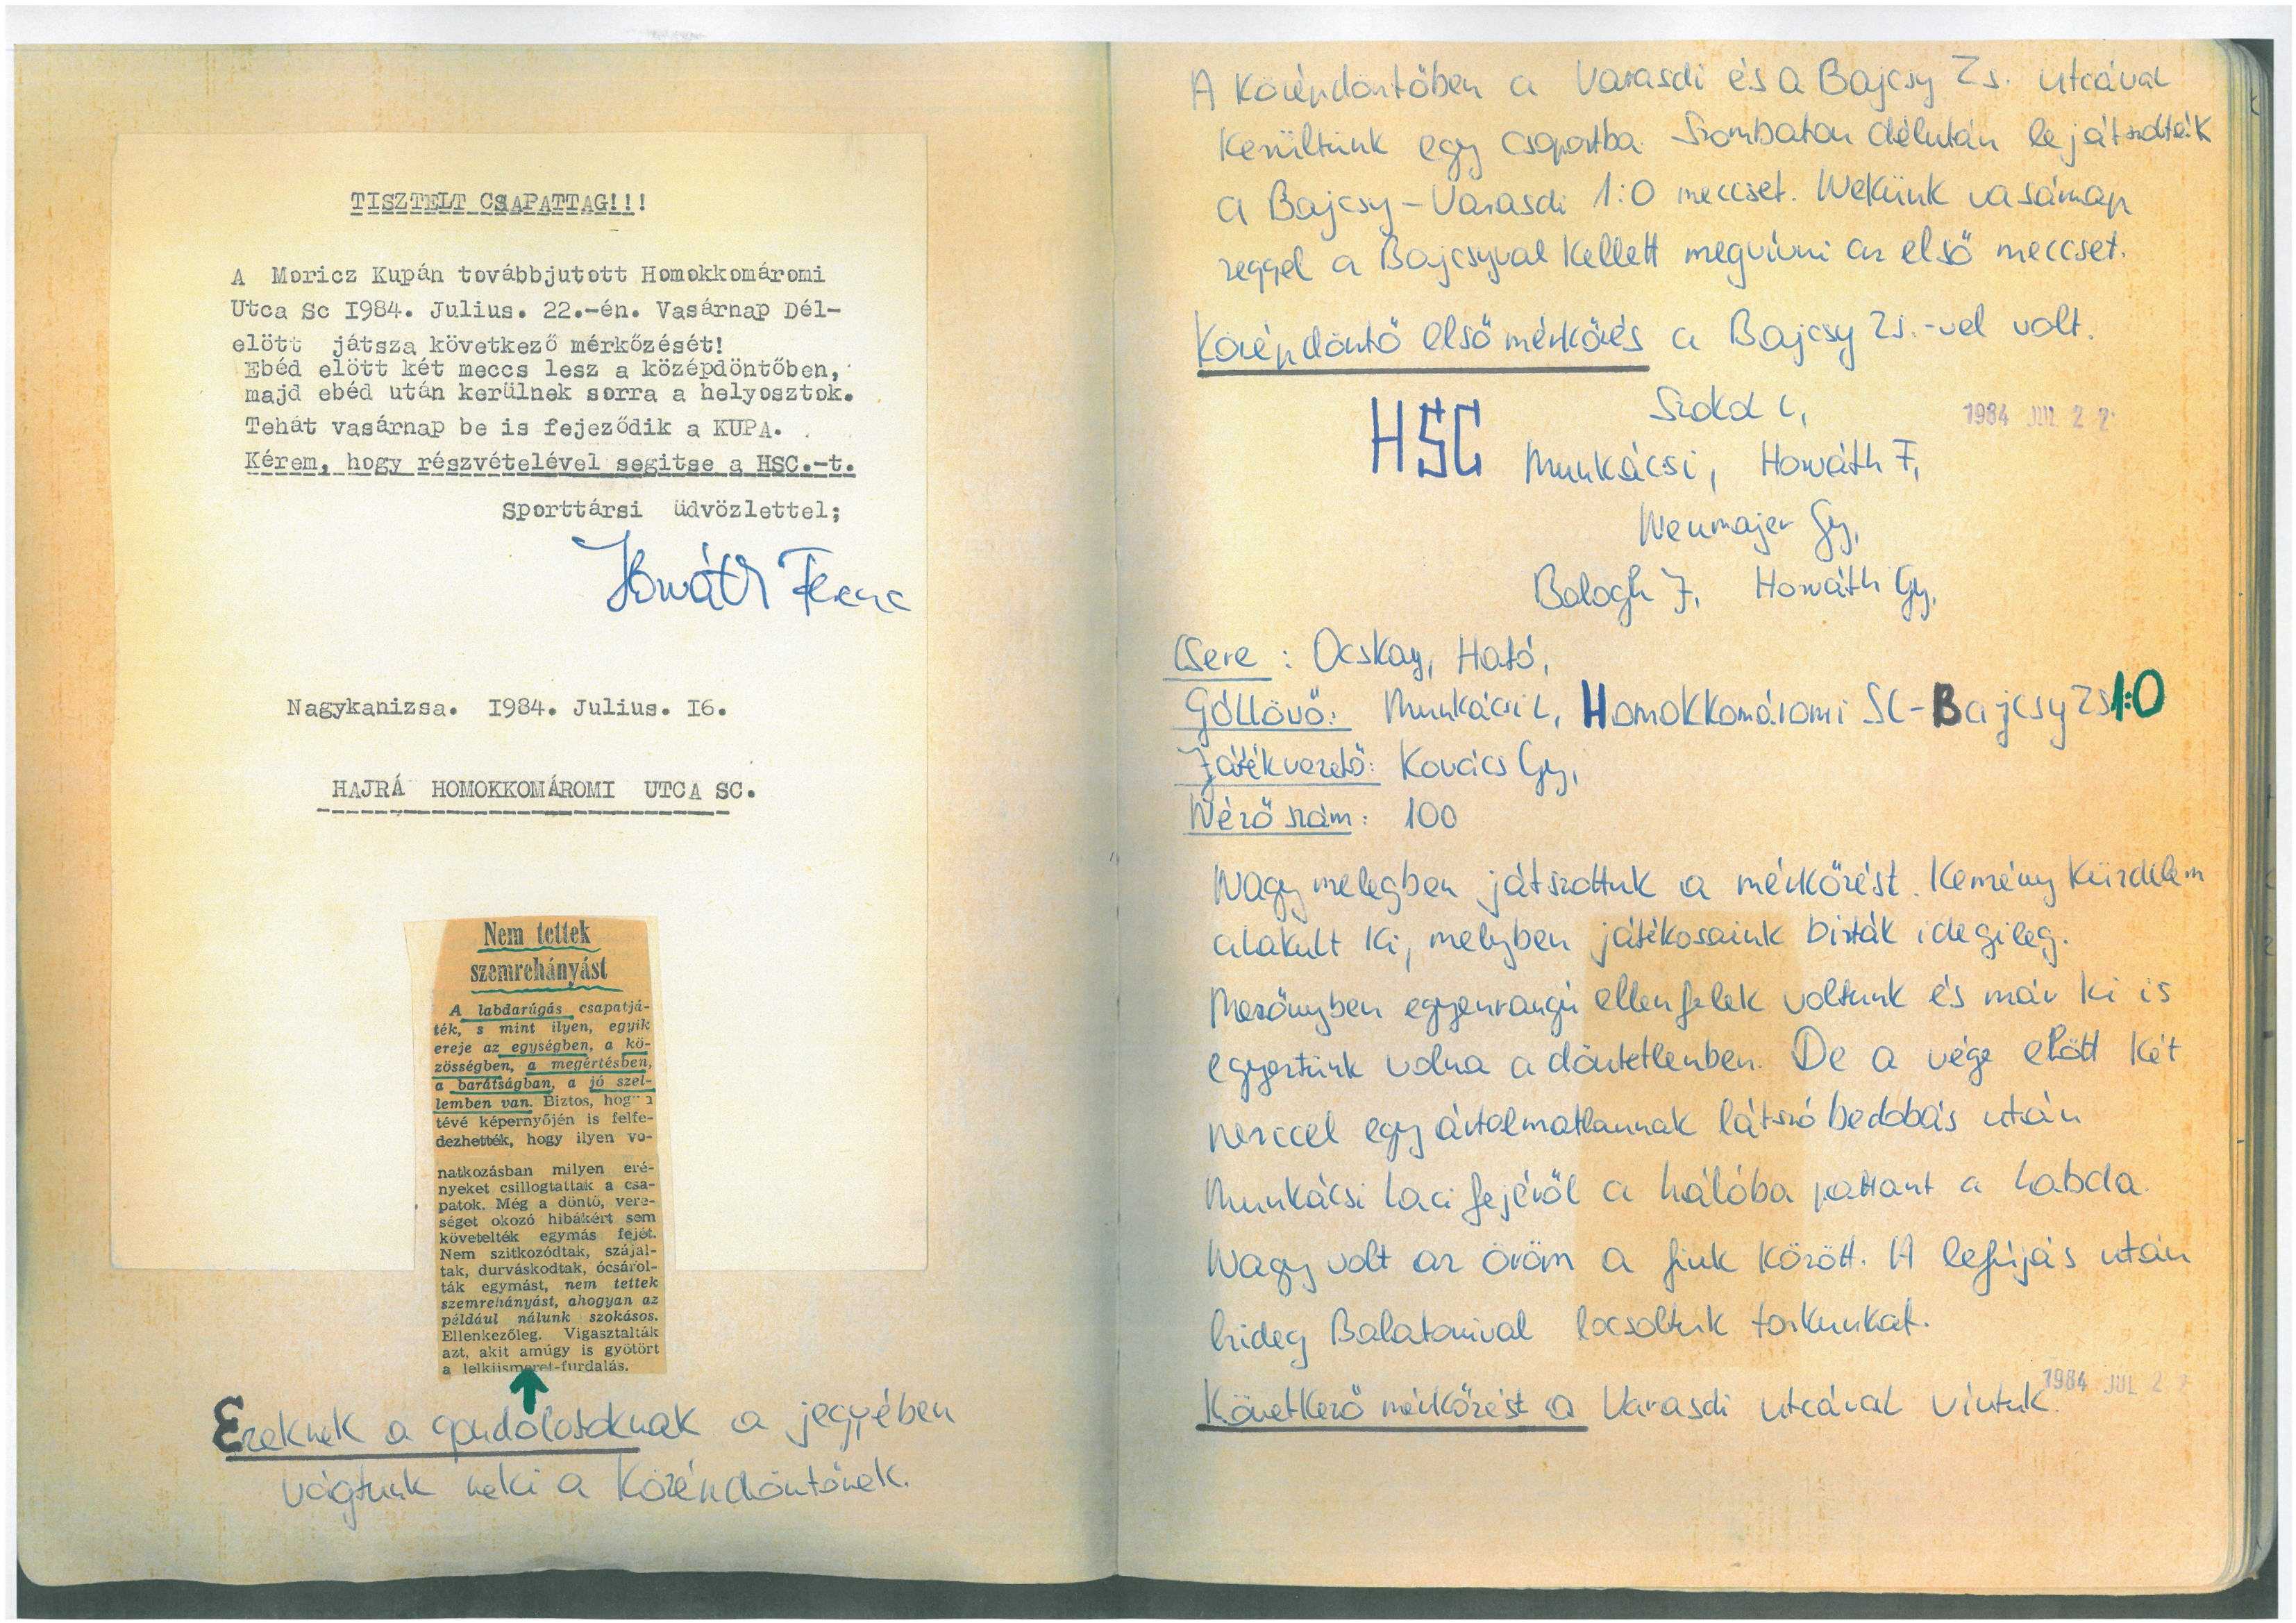 TISZTELT CSAPATTAG!!!
A Moricz Kupán továbbjutott Homokkomáromi
Utca Sc I984. Julius. 22.-én. Vasárnap Dél-
elött játsza következő mérkőzését!
Ebéd elött két meccs lesz a középdöntőben,
majd ebéd után kerülnek sorra a helyosztok.
Tehát vasárnap be is fejeződik a KUPA.
Kérem, hogy részvételével segitse a HSC.-t.
Sporttársi üdvözlettel;
Horváth Ferenc
Nagykanizsa. I984. Julius. I6.
HAJRÁ HOMOKKOMÁROMI UTCA SC.
Nem tettek
szemrehányást
A labdarúgás csapatjá-
ték, s mint ilyen, egyik
ereje az egységben, a kö-
zösségben, a megértésben,
a barátságban, a jó szel-
lemben van. Biztos, hogy a
tévé képernyőjén is felfe-
dezhették, hogy ilyen vo-
natkozásban milyen eré-
nyeket csillogtattak a csa-
patok. Még a döntő, vere-
séget okozó hibákért sem
követelték egymás fejét.
Nem szitkozódtak, szájal-
tak, durváskodtak, ócsárol-
ták egymást, nem tettek
szemrehányást, ahogyan az
például nálunk szokásos.
Ellenkezőleg. Vigasztalták
azt, akit amúgy is gyötört
a lelkiismeret-furdalás.
Ezeknek a gondolatoknak a jegyében
vágtunk neki a Középdöntőnek.
A Középdöntőben a Varasdi és a Bajcsy Zs. utcával
kerültünk egy csoportba. Szombaton délután lejátszották
a Bajcsy-Varasdi 1:0 meccset. Nekünk vasárnap
reggel a Bajcsyval kellett megvívni az első meccset.
Középdöntő első mérkőzés a Bajcsy Zs.-vel volt.
HSC
Szokol L,
1984 JUL 22
Munkácsi, Horváth F,
Neumajer Gy,
Balogh J, Horváth Gy,
Csere: Ocskay, Ható,
Góllövő: Munkácsi L, Homokkomáromi SC-Bajcsy Zs 1:0
Játékvezető: Kovács Gy,
Néző szám: 100
Nagy melegben játszottuk a mérkőzést. Kemény küzdelem
alakult ki, melyben játékosaink bírták idegileg.
Mezőnyben egyenrangú ellenfelek voltunk és már ki is
egyeztünk volna a döntetlenben. De a vége előtt két
perccel egy ártalmatlannak látszó bedobás után
Munkácsi Laci fejéről a hálóba pattant a labda.
Nagy volt az öröm a fiuk között. A lefújás után
hideg Balatonival locsoltuk torkunkat.
1984 JUL 2
Következő mérkőzést a Varasdi utcával vívtuk.